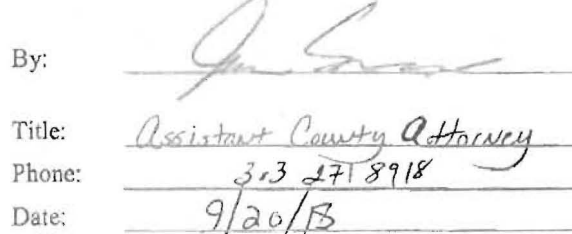 By:
Title: Assistant County Attorney
Phone: 303 271 8918
Date: 9/20/13